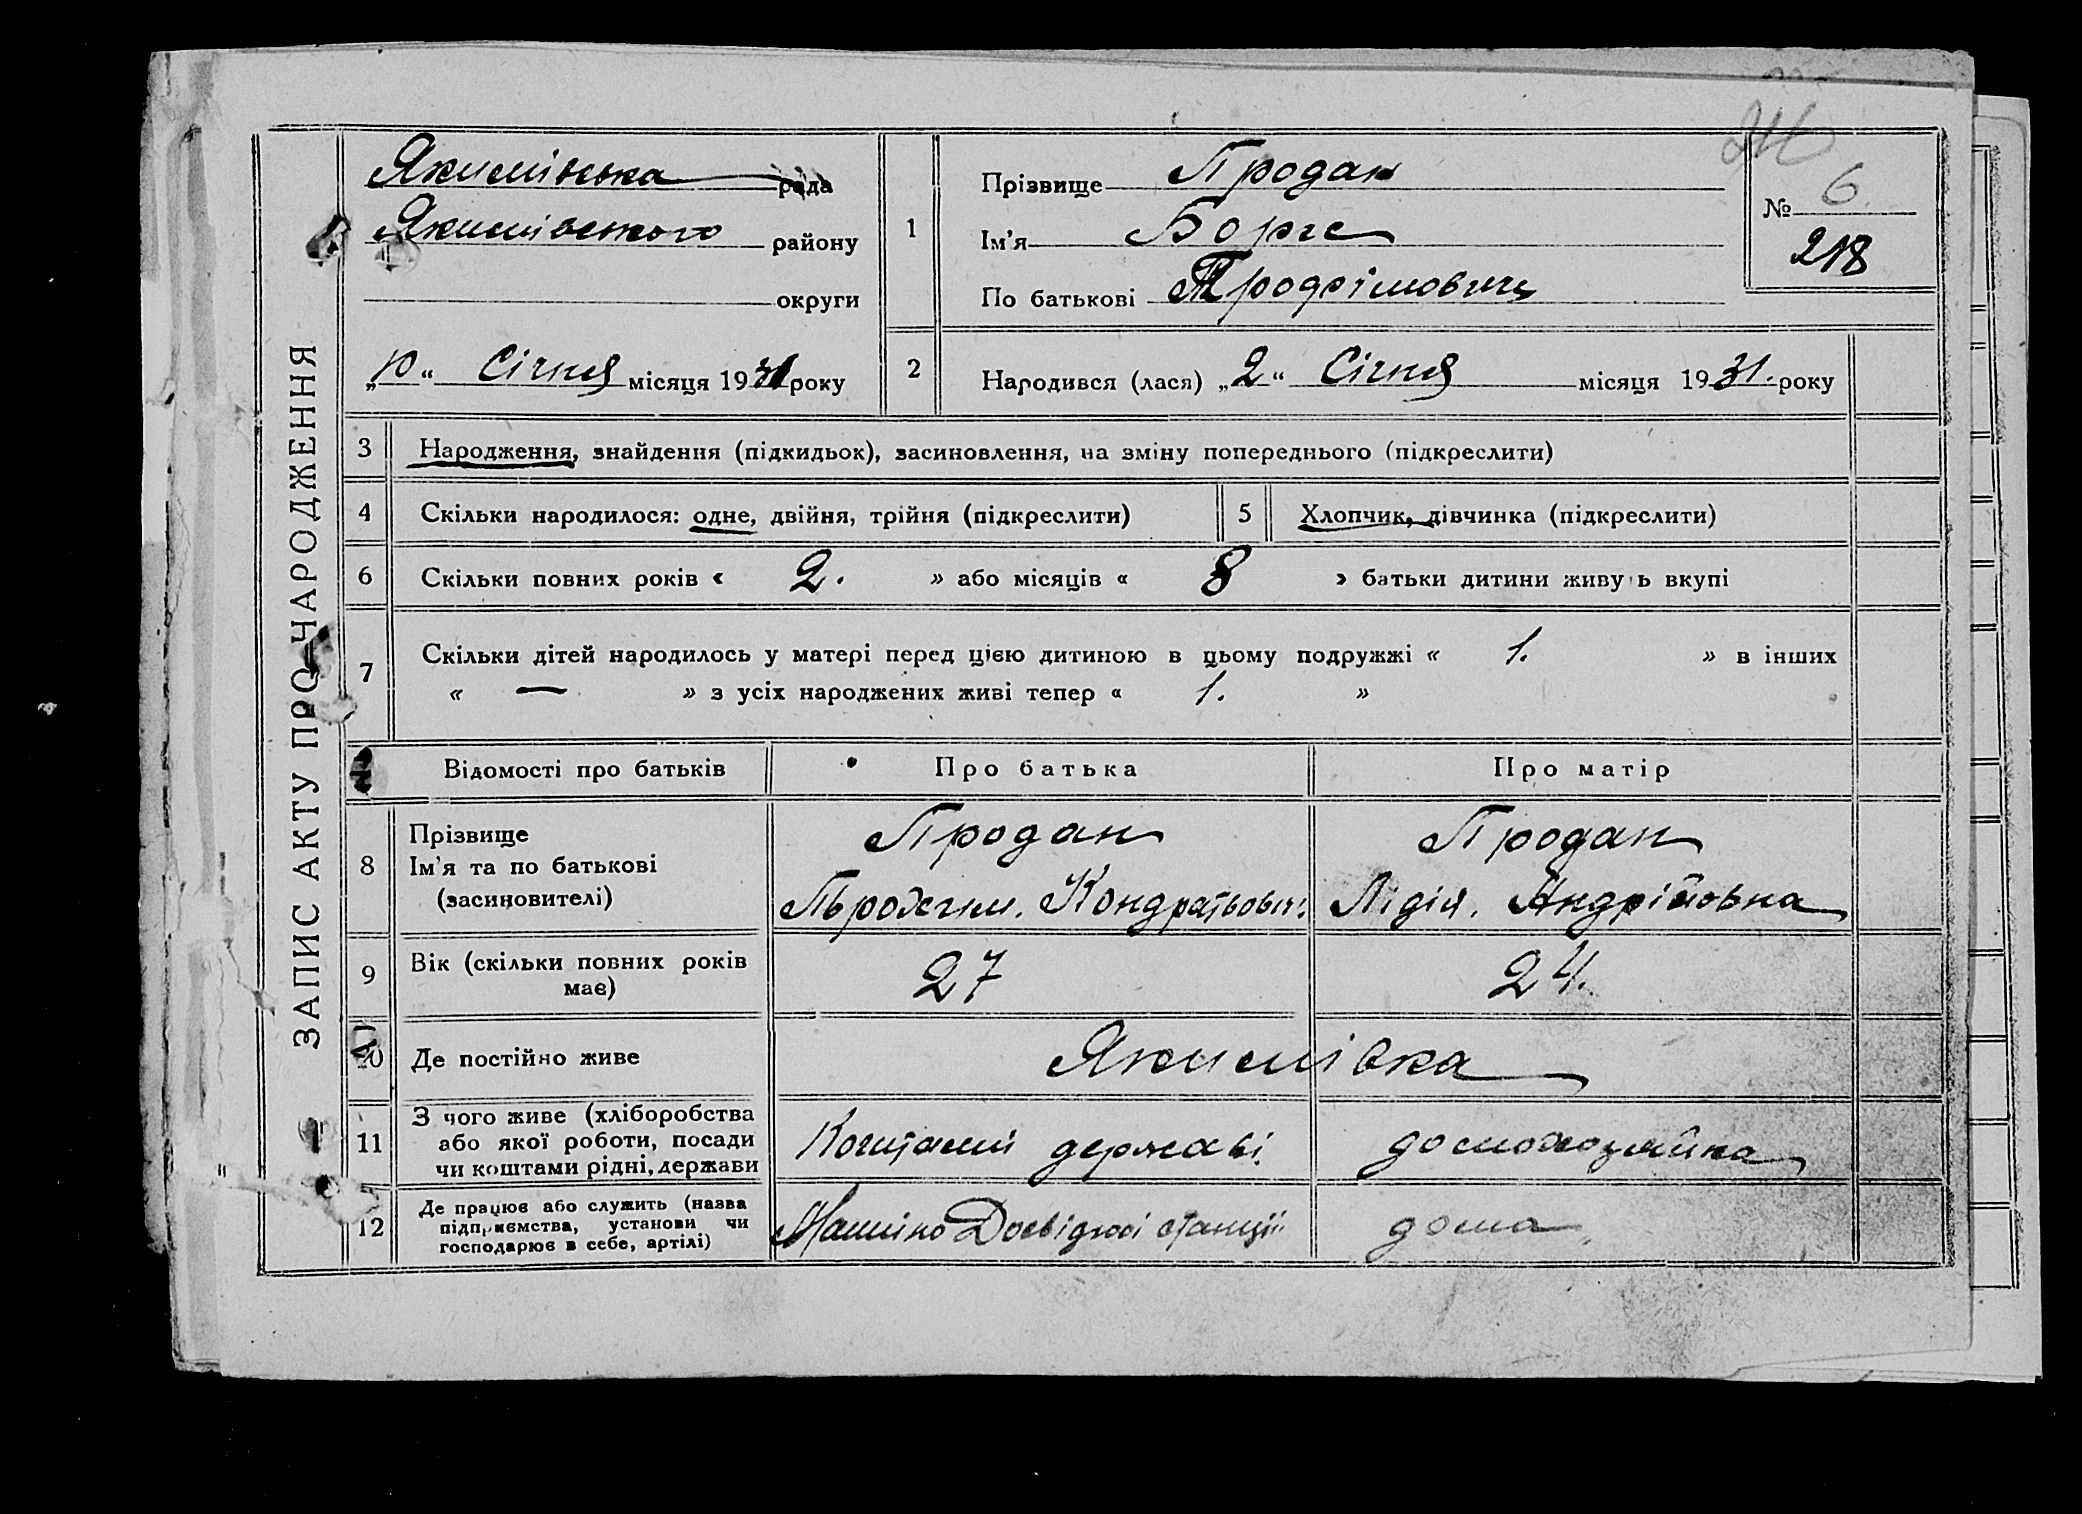 ЗАПИС АКТУ ПРО НАРОДЖЕННЯ
Якимівська рада
Якимівського району
округи
„10“ Січня місяця 1931 року
1
Прізвище Продан
Ім'я Борге
По батькові Трофімович
№ 6
218
2
Народився (лася) „2“ Січня місяця 1931. року
3 Народження, знайдення (підкидьок), засиновлення, на зміну попереднього (підкреслити)
4 Скільки народилося: одне, двійня, трійня (підкреслити) 5 Хлопчик, дівчинка (підкреслити)
6 Скільки повних років « 2. » або місяців « 8 » батьки дитини живуть вкупі
7 Скільки дітей народилось у матері перед цією дитиною в цьому подружжі « 1. » в інших
« — » з усіх народжених живі тепер « 1. »
Відомості про батьків Про батька Про матір
8 Прізвище
Ім'я та по батькові
(засиновителі)
Продан
Кондратьович.
Продан
Лідія. Андріівовна
9 Вік (скільки повних років
має)
27 24.
10 Де постійно живе Якимівка
11 З чого живе (хліборобства
або якої роботи, посади
чи коштами рідні, держави
Коштами державі. домохозяйка
12 Де працює або служить (назва
підприємства, установи чи
господарює в себе, артілі)
Машіно Досвідної станціі дома